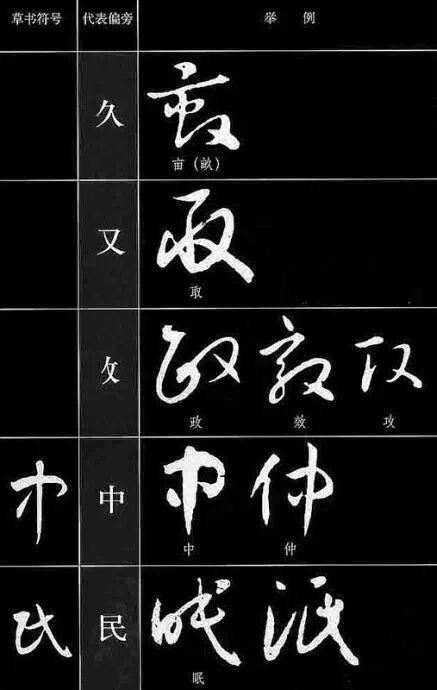 草书符号 代表偏旁 举 例
久
亩（畝）
又
取
攵
政 效 攻
中
中 仲
民
眠